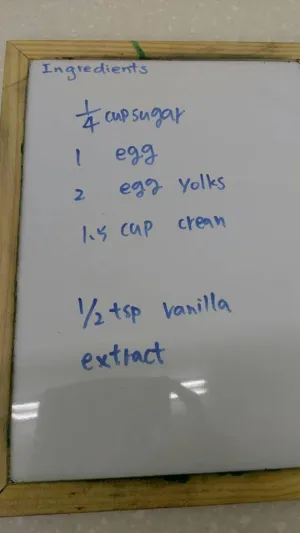 Ingredients
1/4 cup sugar
1 egg
2 egg yolks
1.5 cup cream
1/2 tsp vanilla
extract